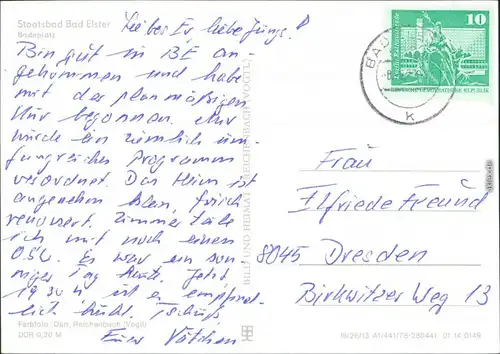 Staatsbad Bad Elster
Badeplatz
Liebe Ev, liebe Jungs!
Bin gut in BE an-
gekommen und habe
mit der planmäßigen
Kur begonnen. Mir
wurde ein ziemlich um-
fangreiches Programm
verordnet. Das Heim ist
angenehm klein, frisch
renoviert. Zimmer teile
ich mit noch einem
Es war ein son-
niger Tag heute. Jetzt
19.30 h ist es empfind-
lich kühl. Tschüß
Euer
Farbfoto: Darr, Reichenbach (Vogtl)
DDR 0,20 M
BILD UND HEIMAT REICHENBACH (VOGTL)
III/26/13 A1/441/78 280441 01 14 0149
10
DEUTSCHE DEMOKRATISCHE REPUBLIK
BAD
k
Frau
Elfriede Freund
8045 Dresden
Birkwitzer Weg 13